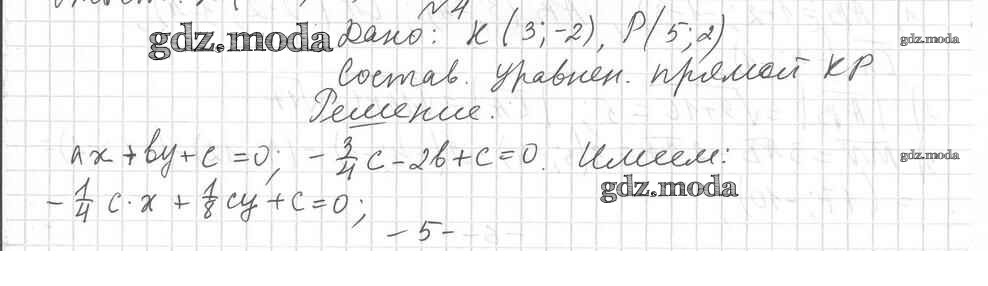 №4
gdz.moda Дано: K(3;-2), P(5;2) gdz.moda
Состав. уравнен. прямой KP
Решение.
ax+by+c=0; -3/4c-2b+c=0. Имеем: gdz.moda
gdz.moda
-1/4c·x+1/8cy+c=0;
-5-